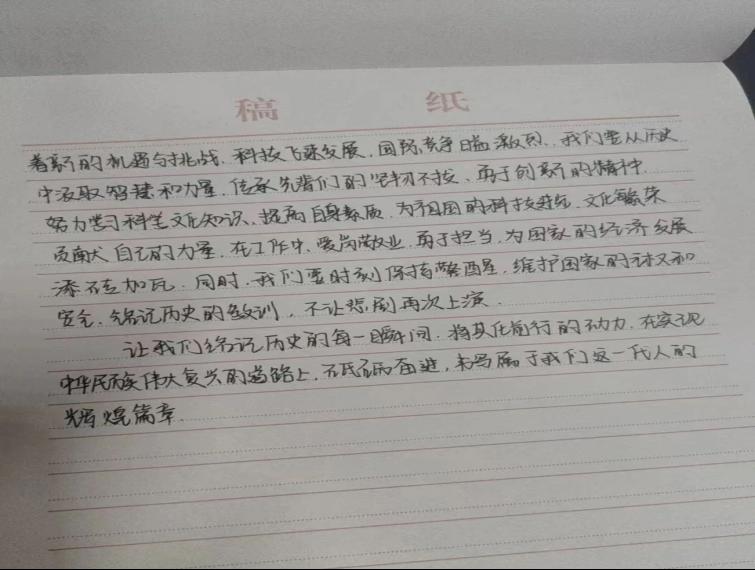 稿 纸
着新的机遇与挑战，科技飞速发展，国际竞争日益激烈，我们要从历史
中汲取智慧和力量，传承先辈们的坚韧不拔、勇于创新的精神，
努力学习科学文化知识，提高自身素质，为祖国的科技进步、文化繁荣
贡献自己的力量，在工作中，爱岗敬业，勇于担当，为国家的经济发展
添砖加瓦。同时，我们要时刻保持警醒，维护国家的主权和
安全，铭记历史的教训，不让悲剧再次上演。
让我们铭记历史的每一瞬间，将其化前行的动力，在实现
中华民族伟大复兴的道路上，砥砺奋进，书写属于我们这一代人的
辉煌篇章。